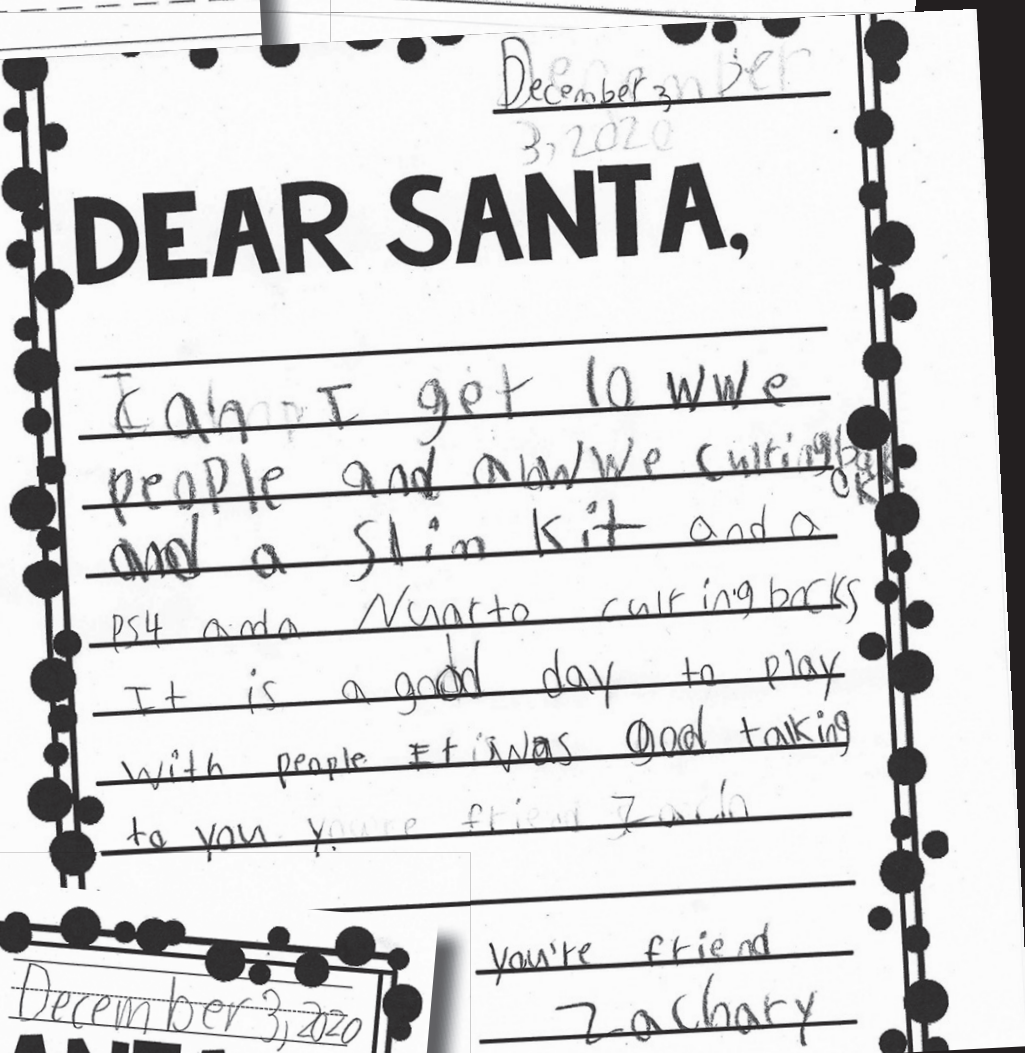 December 3
3, 2020
DEAR SANTA,
Can I get 10 wwe
people and a WWe
and a Slim Kit and a
PS4 and a
It is a good day to play
with people It was good talking
to you you're friend Zach
you're friend
Zachary
December 3, 2020